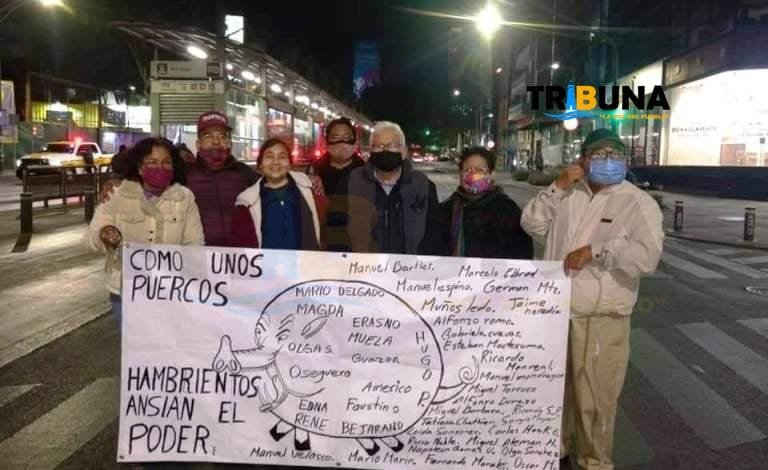 TRIBUNA
"LA VOZ DEL PUEBLO"
COMO UNOS
PUERCOS
HAMBRIENTOS
ANSIAN EL
PODER.
MARIO DELGADO
MAGDA
ERASNO
MUELA
OLGA S.
Guazon
Oseguera
Americo
EDNA
Faustino
RENE BEJARANO
HUGO P.
Manuel Bartlet.
Marcelo Ebbrad
Manuel espino. German Mtz.
Muños ledo. Jaime
heredia
Alfonzo romo.
Gabriela cuevas.
Esteban Moctesuma.
Ricardo
Monreal.
Manuel mondragon
Miguel Torruco
Alfonzo Durazo
Miguel Barbosa. Ricardo S.P.
Tatiana Clouthier.
Carlos Hank G.
Rocio Nahle. Miguel Aleman M.
Napoleon Gomez U. Olga Sanchez
Manuel Velasco. Mario Marin. Fernando Morales. Oscar M.